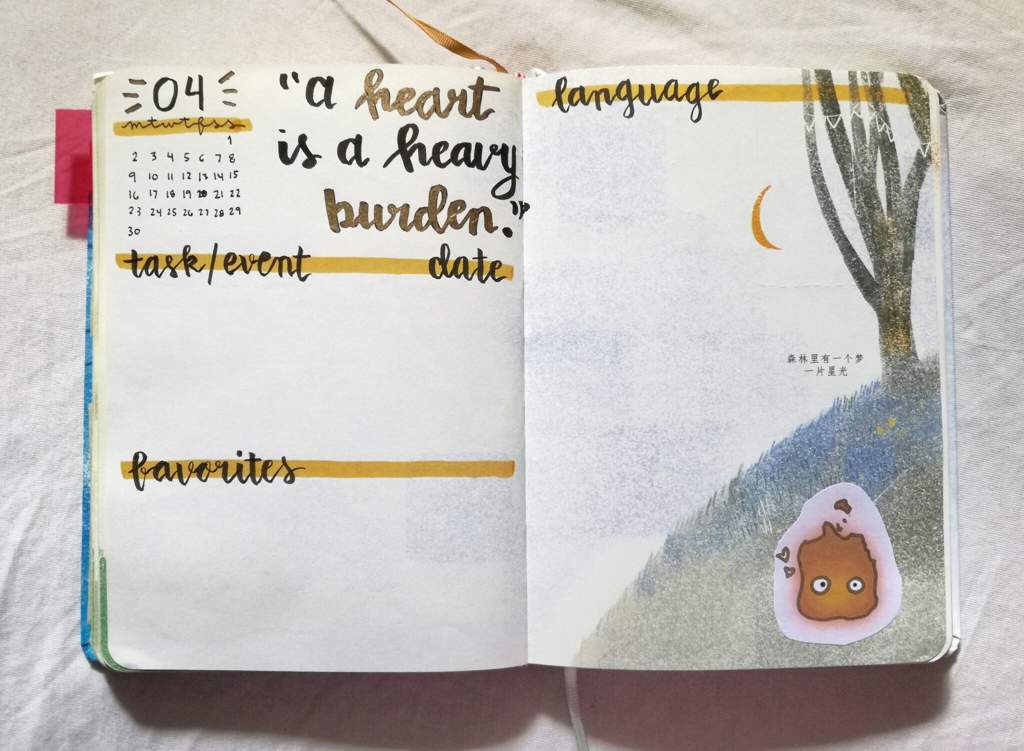 04
m t w t f s s
1
2 3 4 5 6 7 8
9 10 11 12 13 14 15
16 17 18 19 20 21 22
23 24 25 26 27 28 29
30
"a heart
is a heavy
burden."
task/event date
favorites
language
森林里有一个梦
一片星光